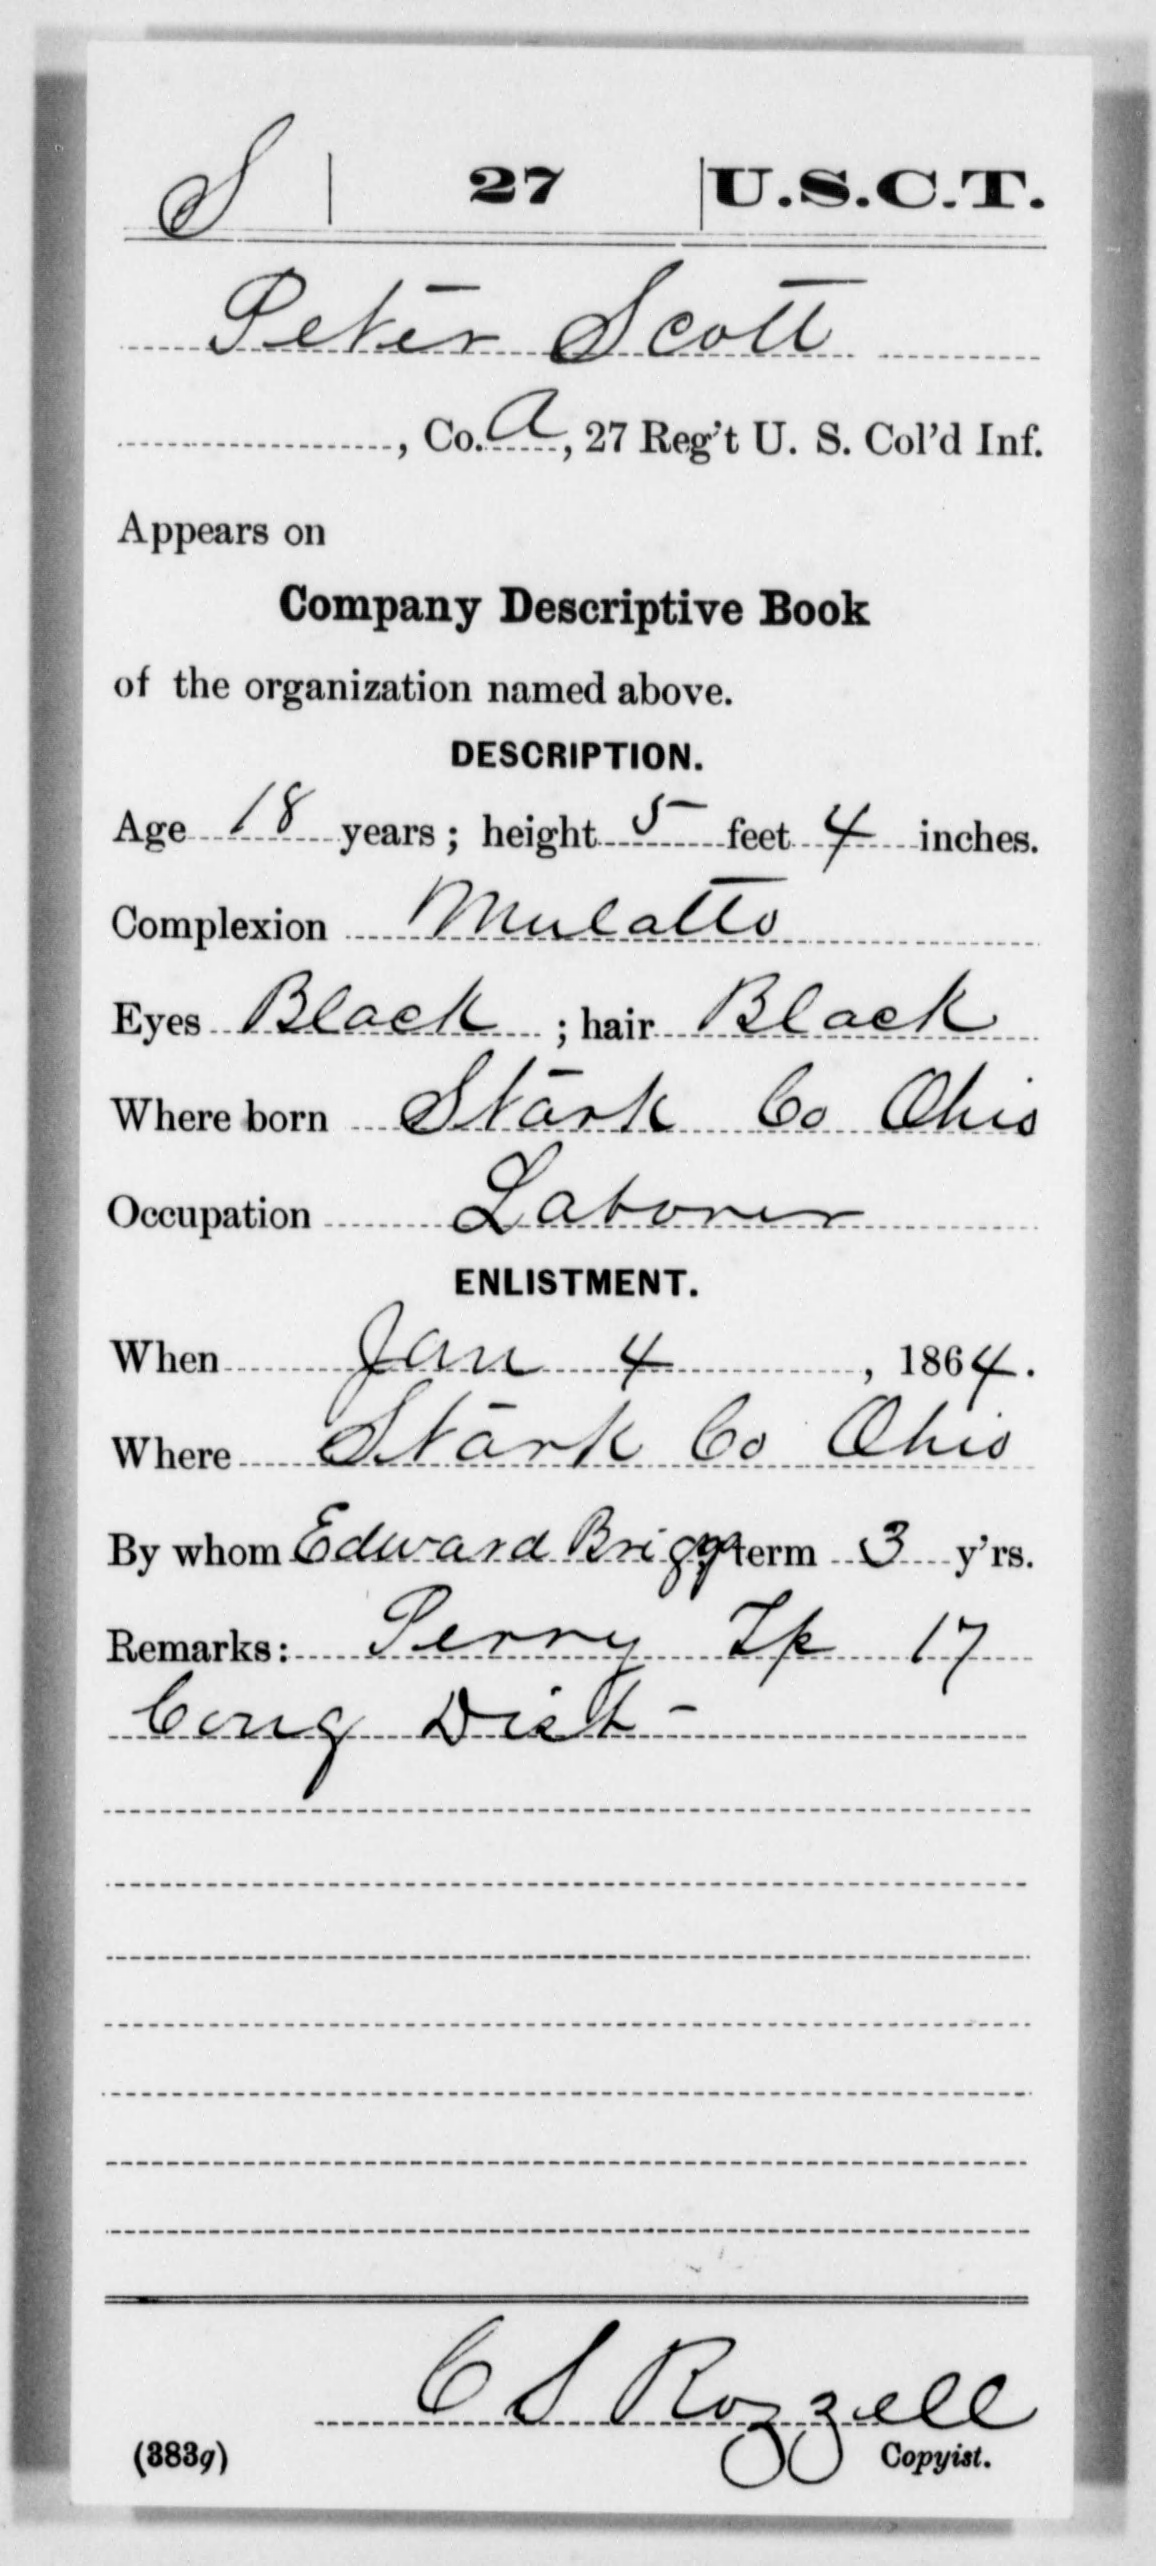 S | 27 | U.S.C.T.
Peter Scott
, Co. A, 27 Reg't U. S. Col'd Inf.
Appears on
Company Descriptive Book
of the organization named above.
DESCRIPTION.
Age 18 years; height 5 feet 4 inches.
Complexion Mulatto
Eyes Black; hair Black
Where born Stark Co Ohio
Occupation Laborer
ENLISTMENT.
When Jan 4, 1864.
Where Stark Co Ohio
By whom Edward Briggs term 3 y'rs.
Remarks: Perry Tp 17
Cong Dist -
C S Rozzell
(383g) Copyist.